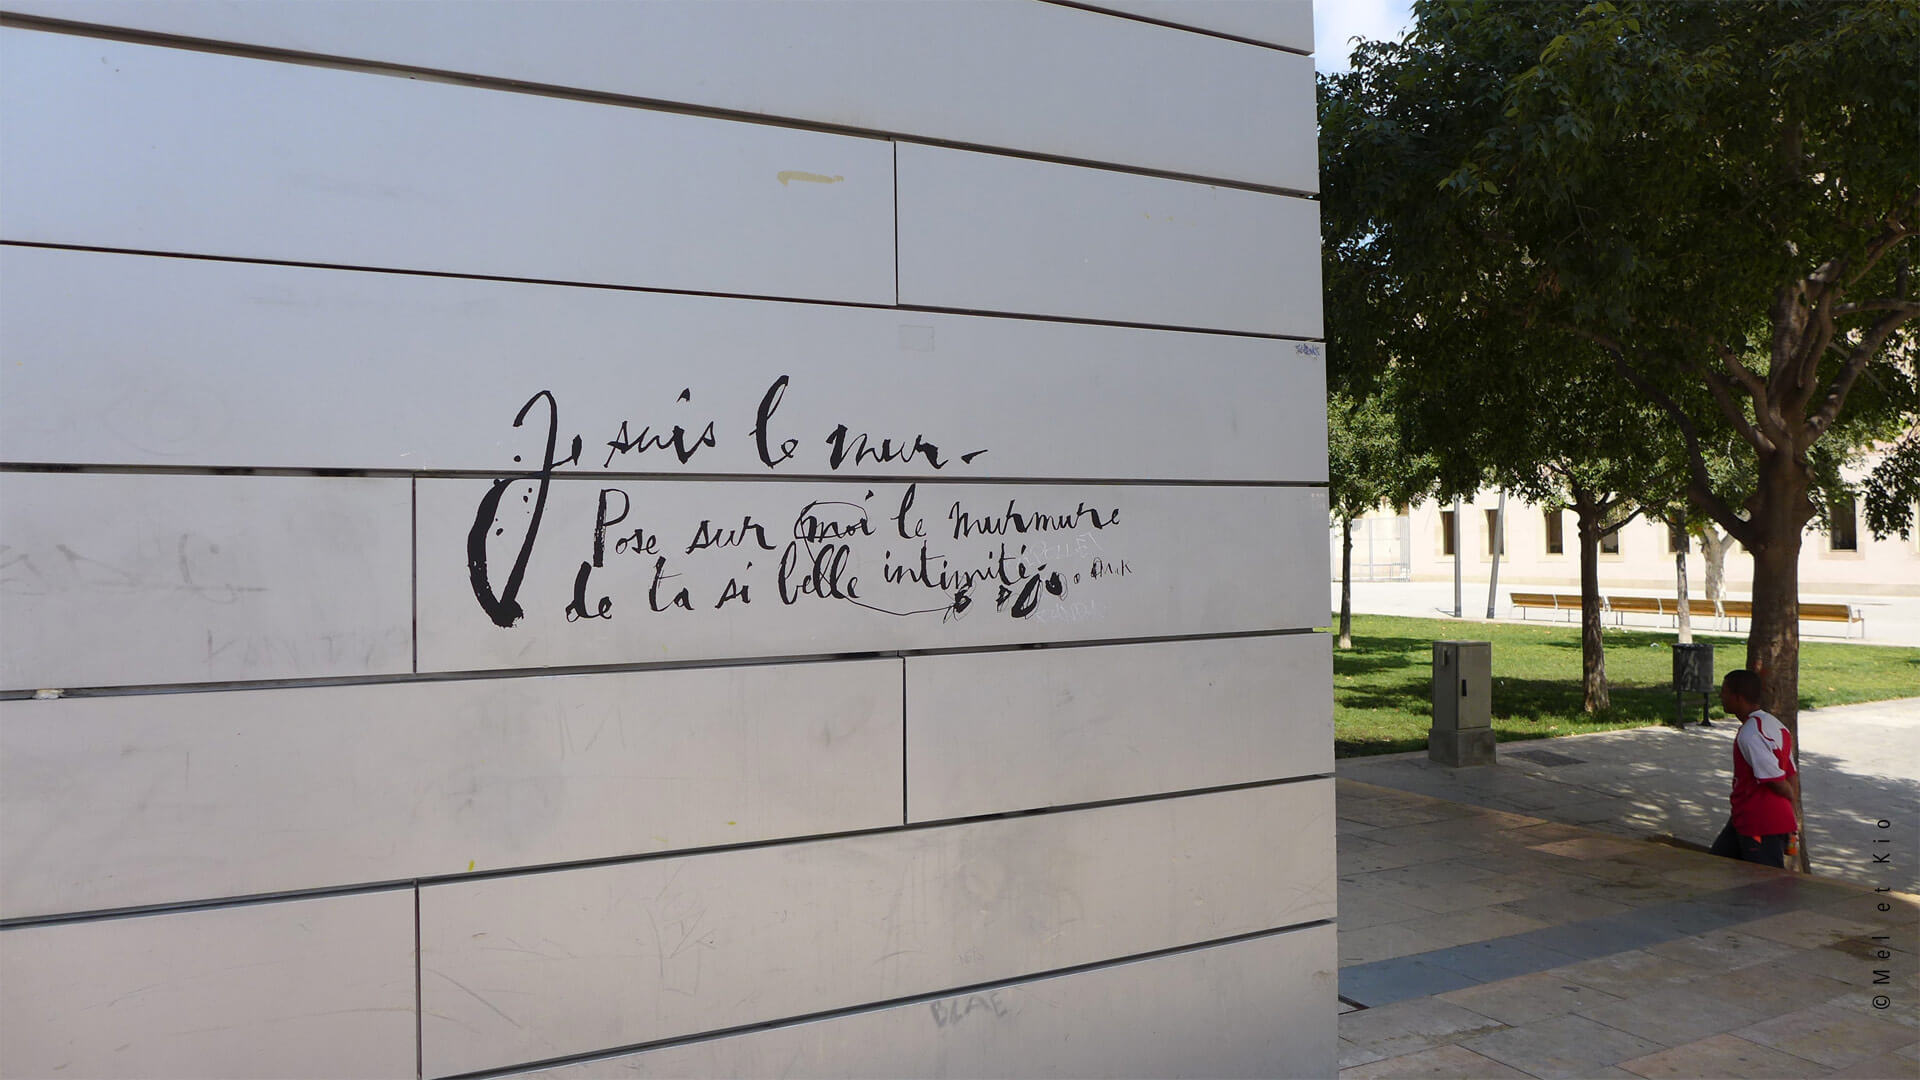 Je suis le mur-
Pose sur moi le murmure
de ta si belle intimité.
BLAE
© Mel et Kio